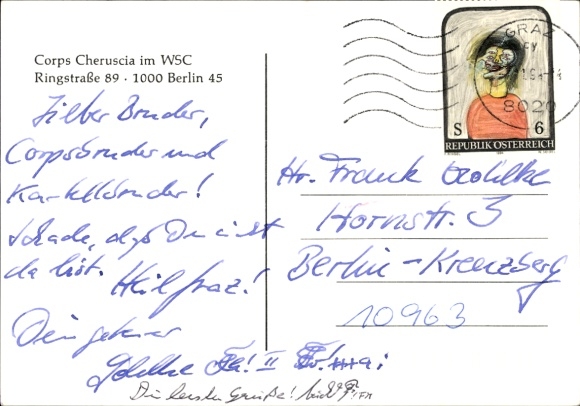 Corps Cheruscia im WSC
Ringstraße 89 · 1000 Berlin 45
Lieber Bruder,
Corpsbruder und
Kartellbruder!
Schade, daß Du nicht
da bist. Heil Graz!
Dein getreuer
GRAZ
8020
S 6
REPUBLIK ÖSTERREICH
Hr. Frank
Hornstr. 3
Berlin-Kreuzberg
10963
Grüße!